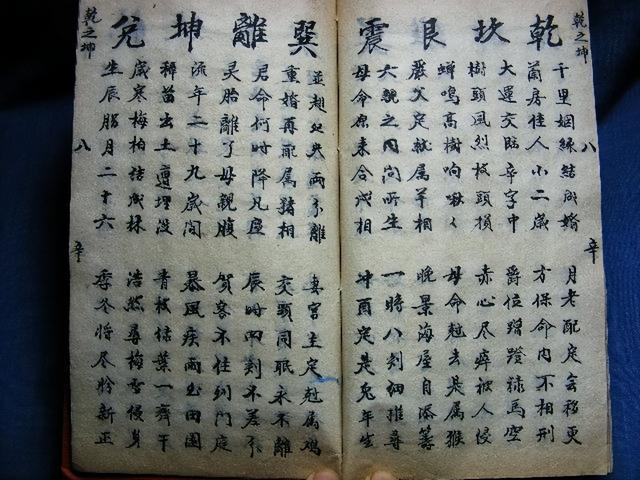 乾之坤 八 辛
乾 坎 艮 震
千里姻緣結成婚 月老配定會移更
蘭房佳人小二歲 方保命内不相刑
大運交臨辛字中 爵位蹭蹬祿馬空
樹頭風烈枝頭損 赤心尽瘁被人侵
蟬鳴高樹响啾く 母命尅去是属猴
嚴父定就属羊相 晚景海屋自添籌
六親之内问所生 一時八刻細推尋
母命原来合成相 冲酉定是兔年生
巽 離 坤 兌
並翅失兩分離 妻宮主定尅属鸡
重婚再配属猪相 交頸同眠永不離
君命何时降凡塵 辰时四刻不差分
灵胎離了母親腹 賀客不住到门庭
流年二十九歲间 暴風疾雨出田園
種苗出土遭埋没 青枝緑葉一齊干
歲寒梅柏結成林 浩然尋梅雪慢身
生辰腊月二十六 季冬将尽新正
乾之坤 八 辛